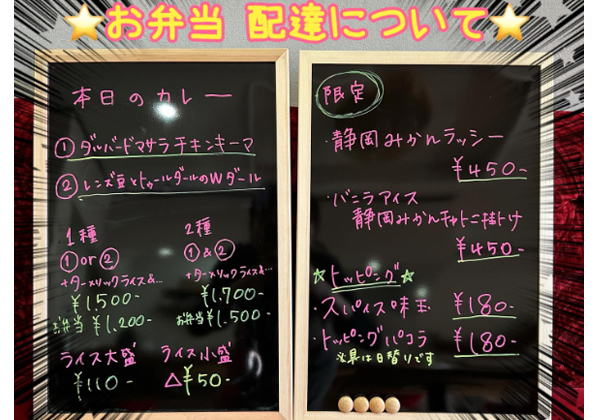 ⭐お弁当 配達について⭐
本日のカレー
① ダルバードマサラチキンキーマ
② レンズ豆とトゥールダールのWダール
1種
①or②
+ターメリックライス&...
¥1.500-
お弁当 ¥1.200-
2種
①&②
+ターメリックライス&...
¥1.700-
お弁当 ¥1.500-
ライス大盛
¥110-
ライス小盛
△¥50-
限定
・静岡みかんラッシー
¥450-
・バニラアイス
静岡みかんチャトニ掛け
¥450-
☆トッピング☆
・スパイス味玉 ¥180-
・トッピングパコラ ¥180-
※具は日替りです